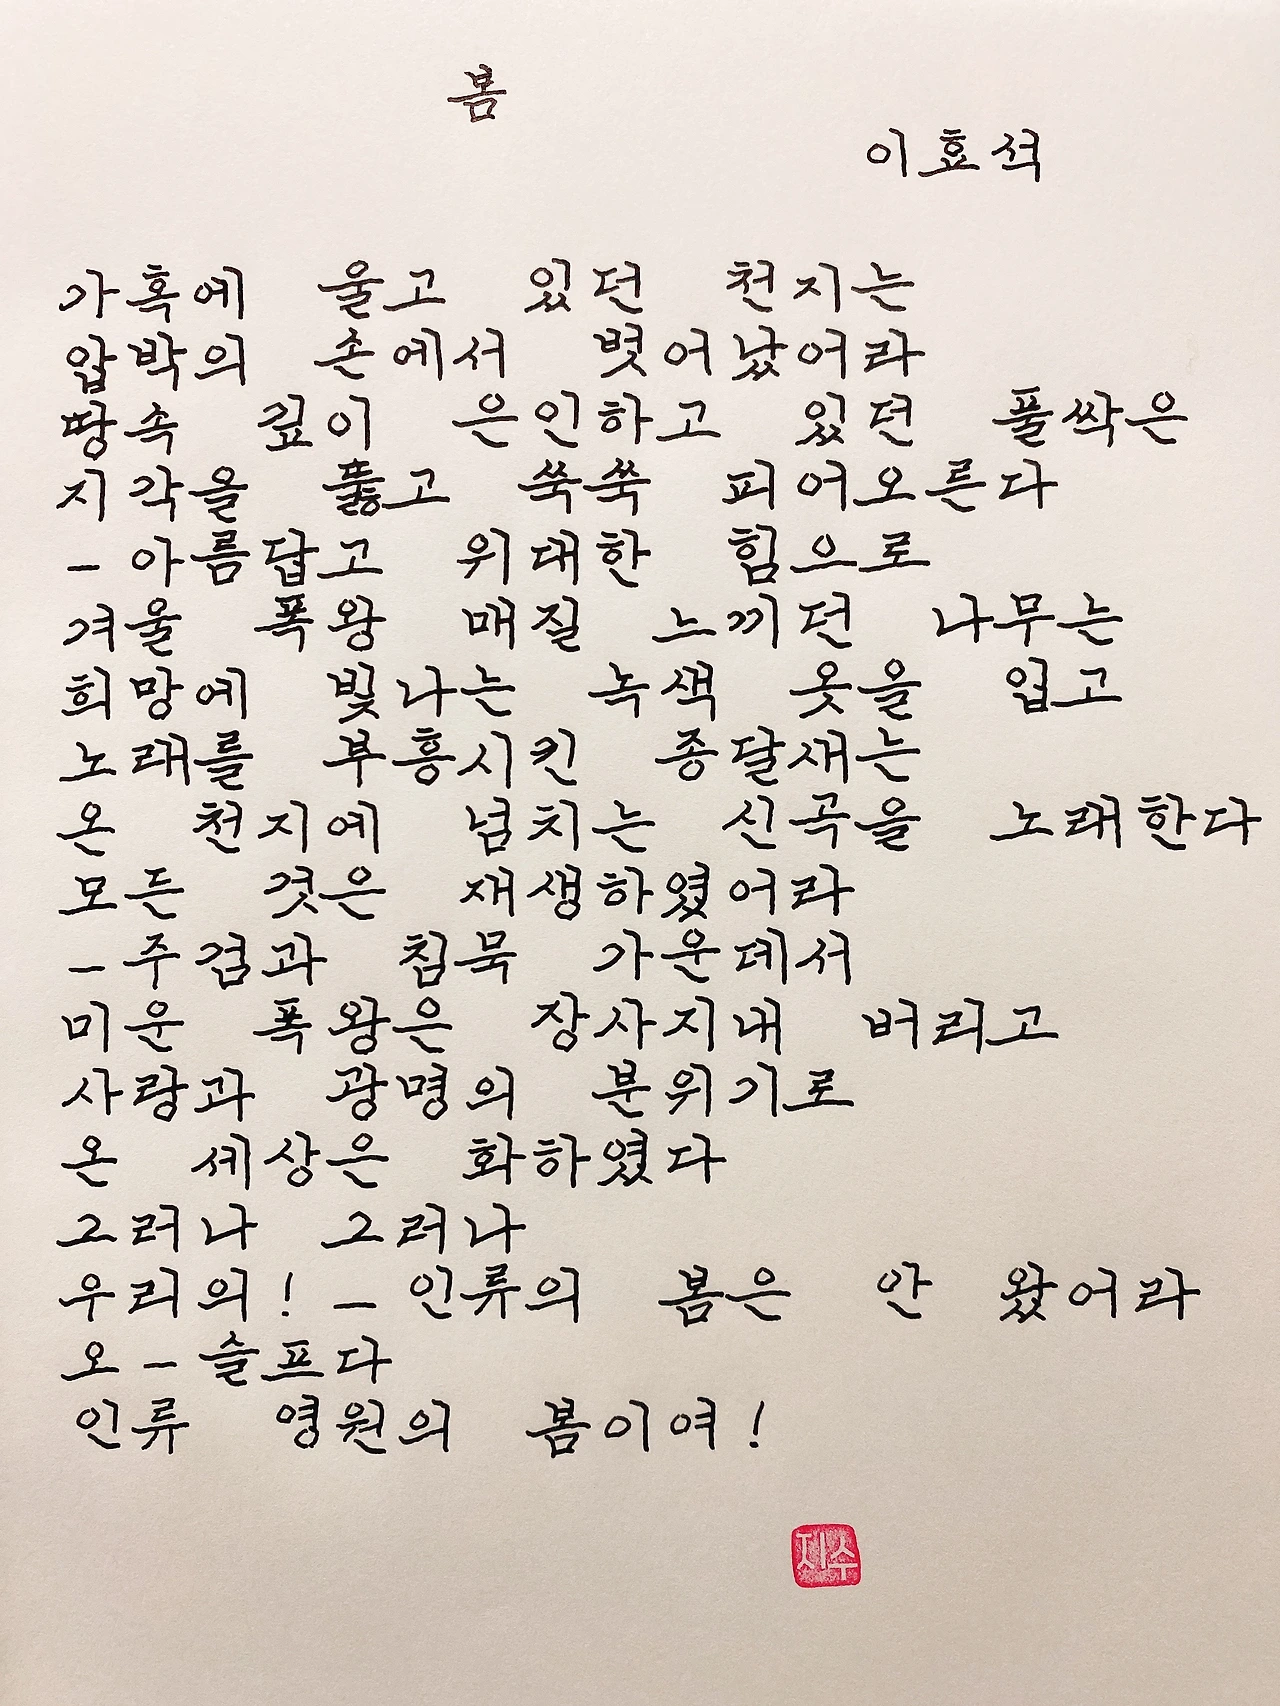 봄
이효석
가혹에 울고 있던 천지는
압박의 손에서 벗어났어라
땅속 깊이 은인하고 있던 풀싹은
지각을 뚫고 쑥쑥 피어오른다
- 아름답고 위대한 힘으로
겨울 폭왕 매질 느끼던 나무는
희망에 빛나는 녹색 옷을 입고
노래를 부흥시킨 종달새는
온 천지에 넘치는 신곡을 노래한다
모든 것은 재생하였어라
- 주검과 침묵 가운데서
미운 폭왕은 장사지내 버리고
사랑과 광명의 분위기로
온 세상은 화하였다
그러나 그러나
우리의! - 인류의 봄은 안 왔어라
오 - 슬프다
인류 영원의 봄이여!
지수